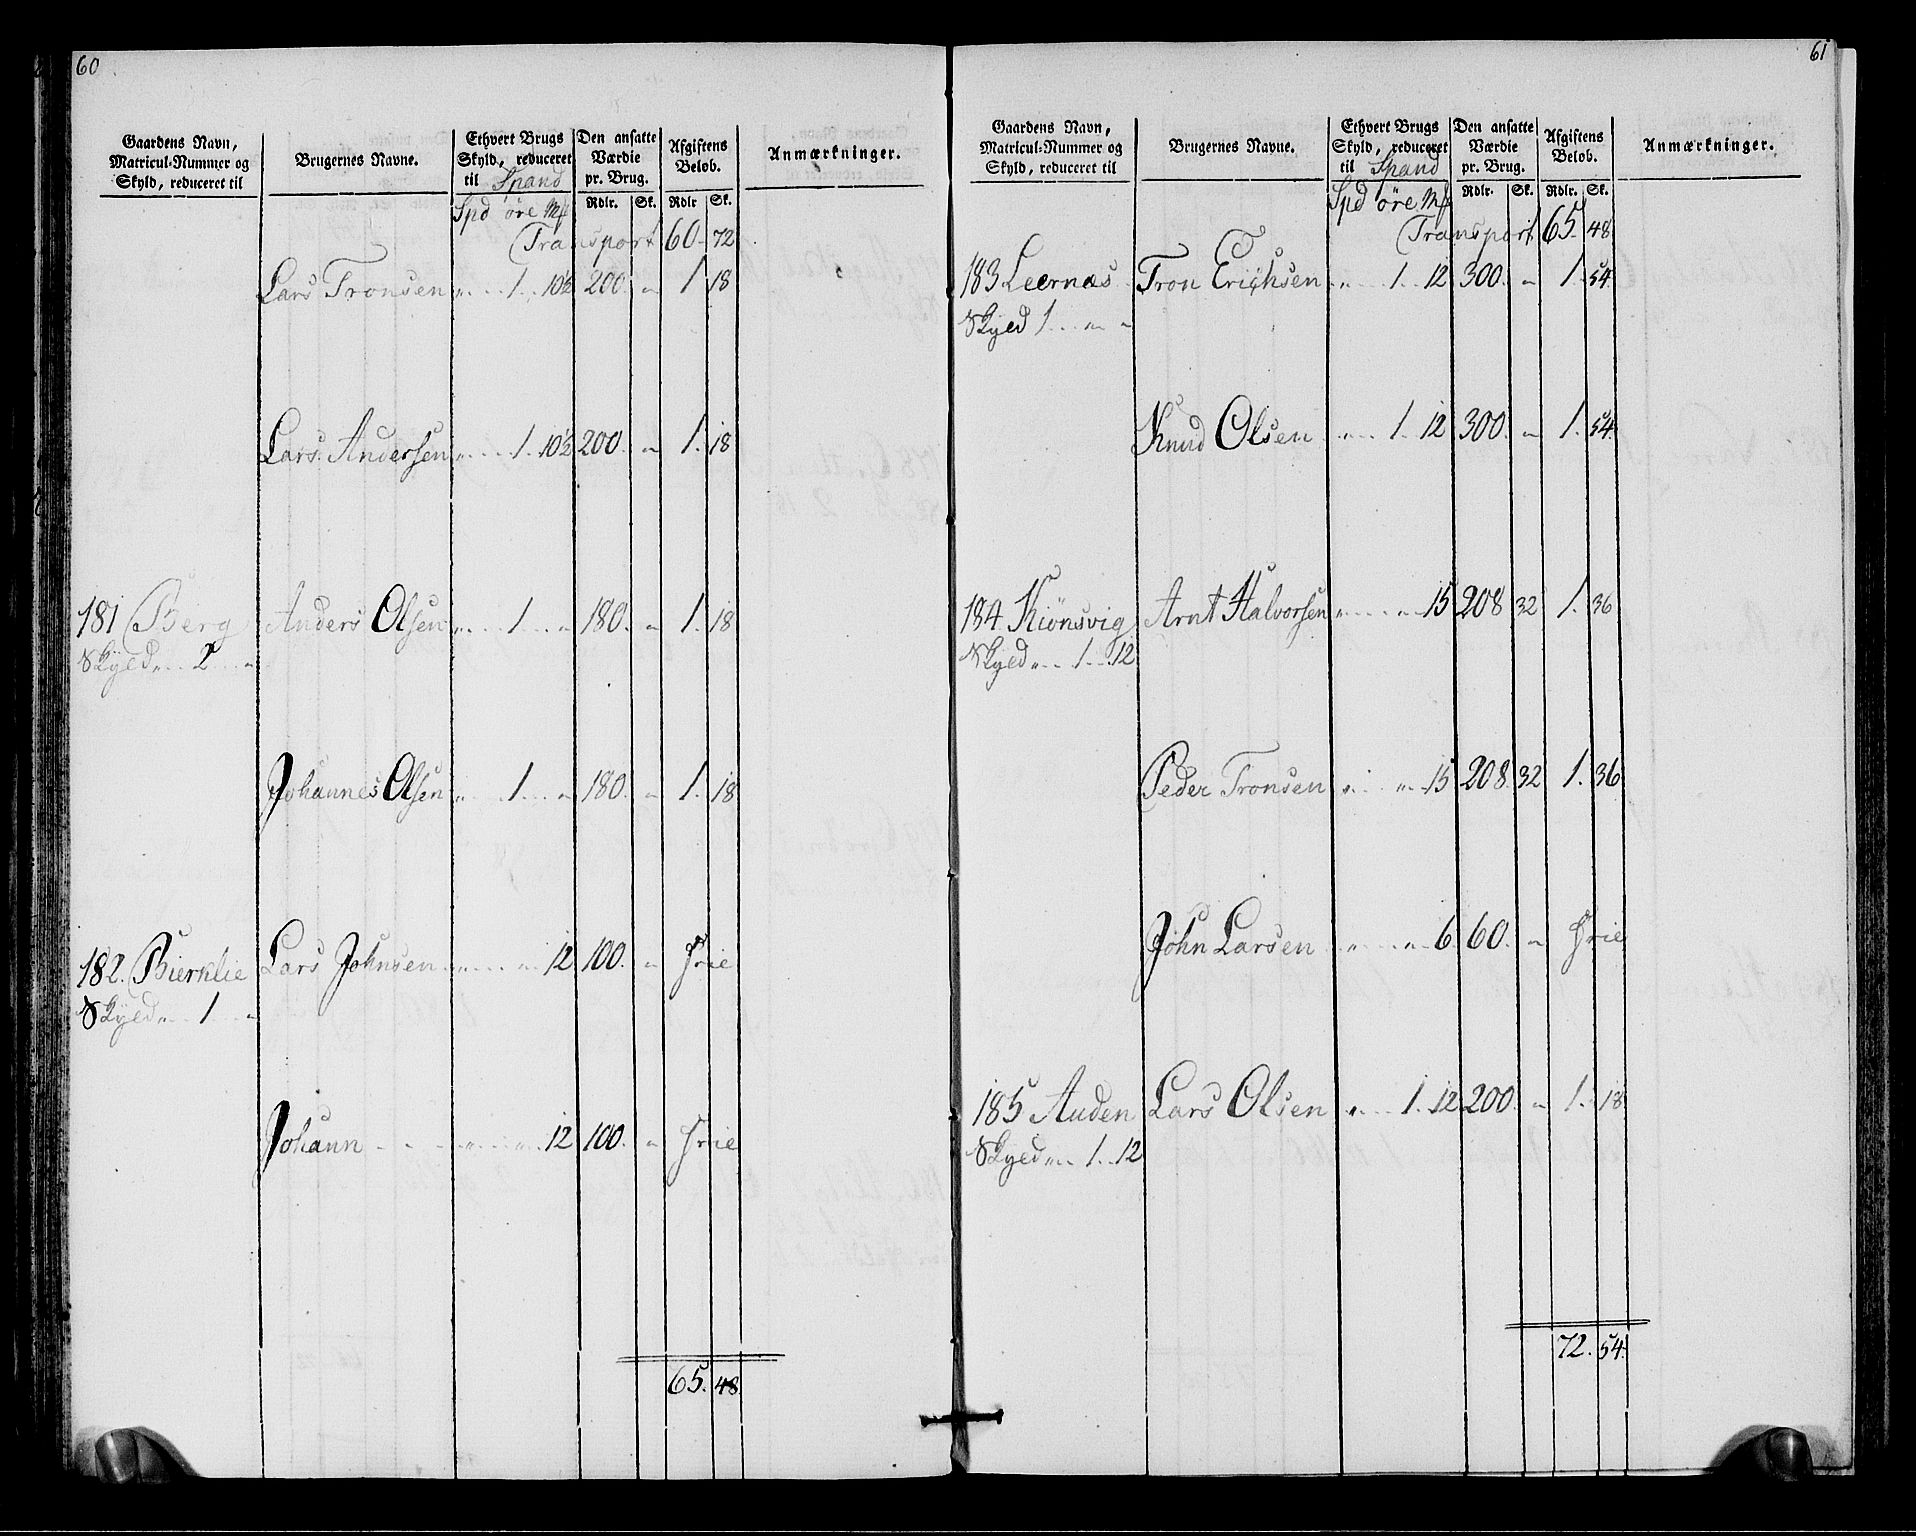 60
Gaardens Navn, Matricul-Nummer og Skyld, reduceret til
Brugernes Navne.
Ethvert Brugs Skyld, reduceret til Spand
Den ansatte Værdie pr. Brug.
Afgiftens Beløb.
Anmærkninger.
Spd øre Mf Rdlr. Sk. Rdlr Sk.
Transport 60 72
Lars Tronsen „ 1 10½ 200 „ 1 18
Lars Andersen „ 1 10½ 200 „ 1. 18
181 Berg Anders Olsen „ 1 „ 180. „ 1. 18
Skyld „ 2 „
Johannes Olsen „ 1 „ 180. „ 1. 18
182. Bierklie Lars Johnsen „ „ 12 100. „ frie
Skyld „ 1 „
Johann „ „ 12 100. „ frie
65. 48
61
Gaardens Navn, Matricul-Nummer og Skyld, reduceret til
Brugernes Navne.
Ethvert Brugs Skyld, reduceret til Spand
Den ansatte Værdie pr. Brug.
Afgiftens Beløb.
Anmærkninger.
Spd øre Mf Rdlr. Sk. Rdlr. Sk.
Transport 65 48
183 Leernæs Tron Erichsen „ 1 12 300. „ 1. 54
Skyld 1 „ „
Knud Olsen „ 1 12 300. „ 1. 54
184 Kiönsvig Arnt Halvorsen „ „ 15 208 32 1. 36
Skyld „ 1 12
Peder Tronsen „ „ 15 208. 32 1. 36
John Larsen „ „ 6 60. „ frie
185 Auden Lars Olsen „ 1. 12 200. „ 1. 18
Skyld „ 1 12
72. 54.